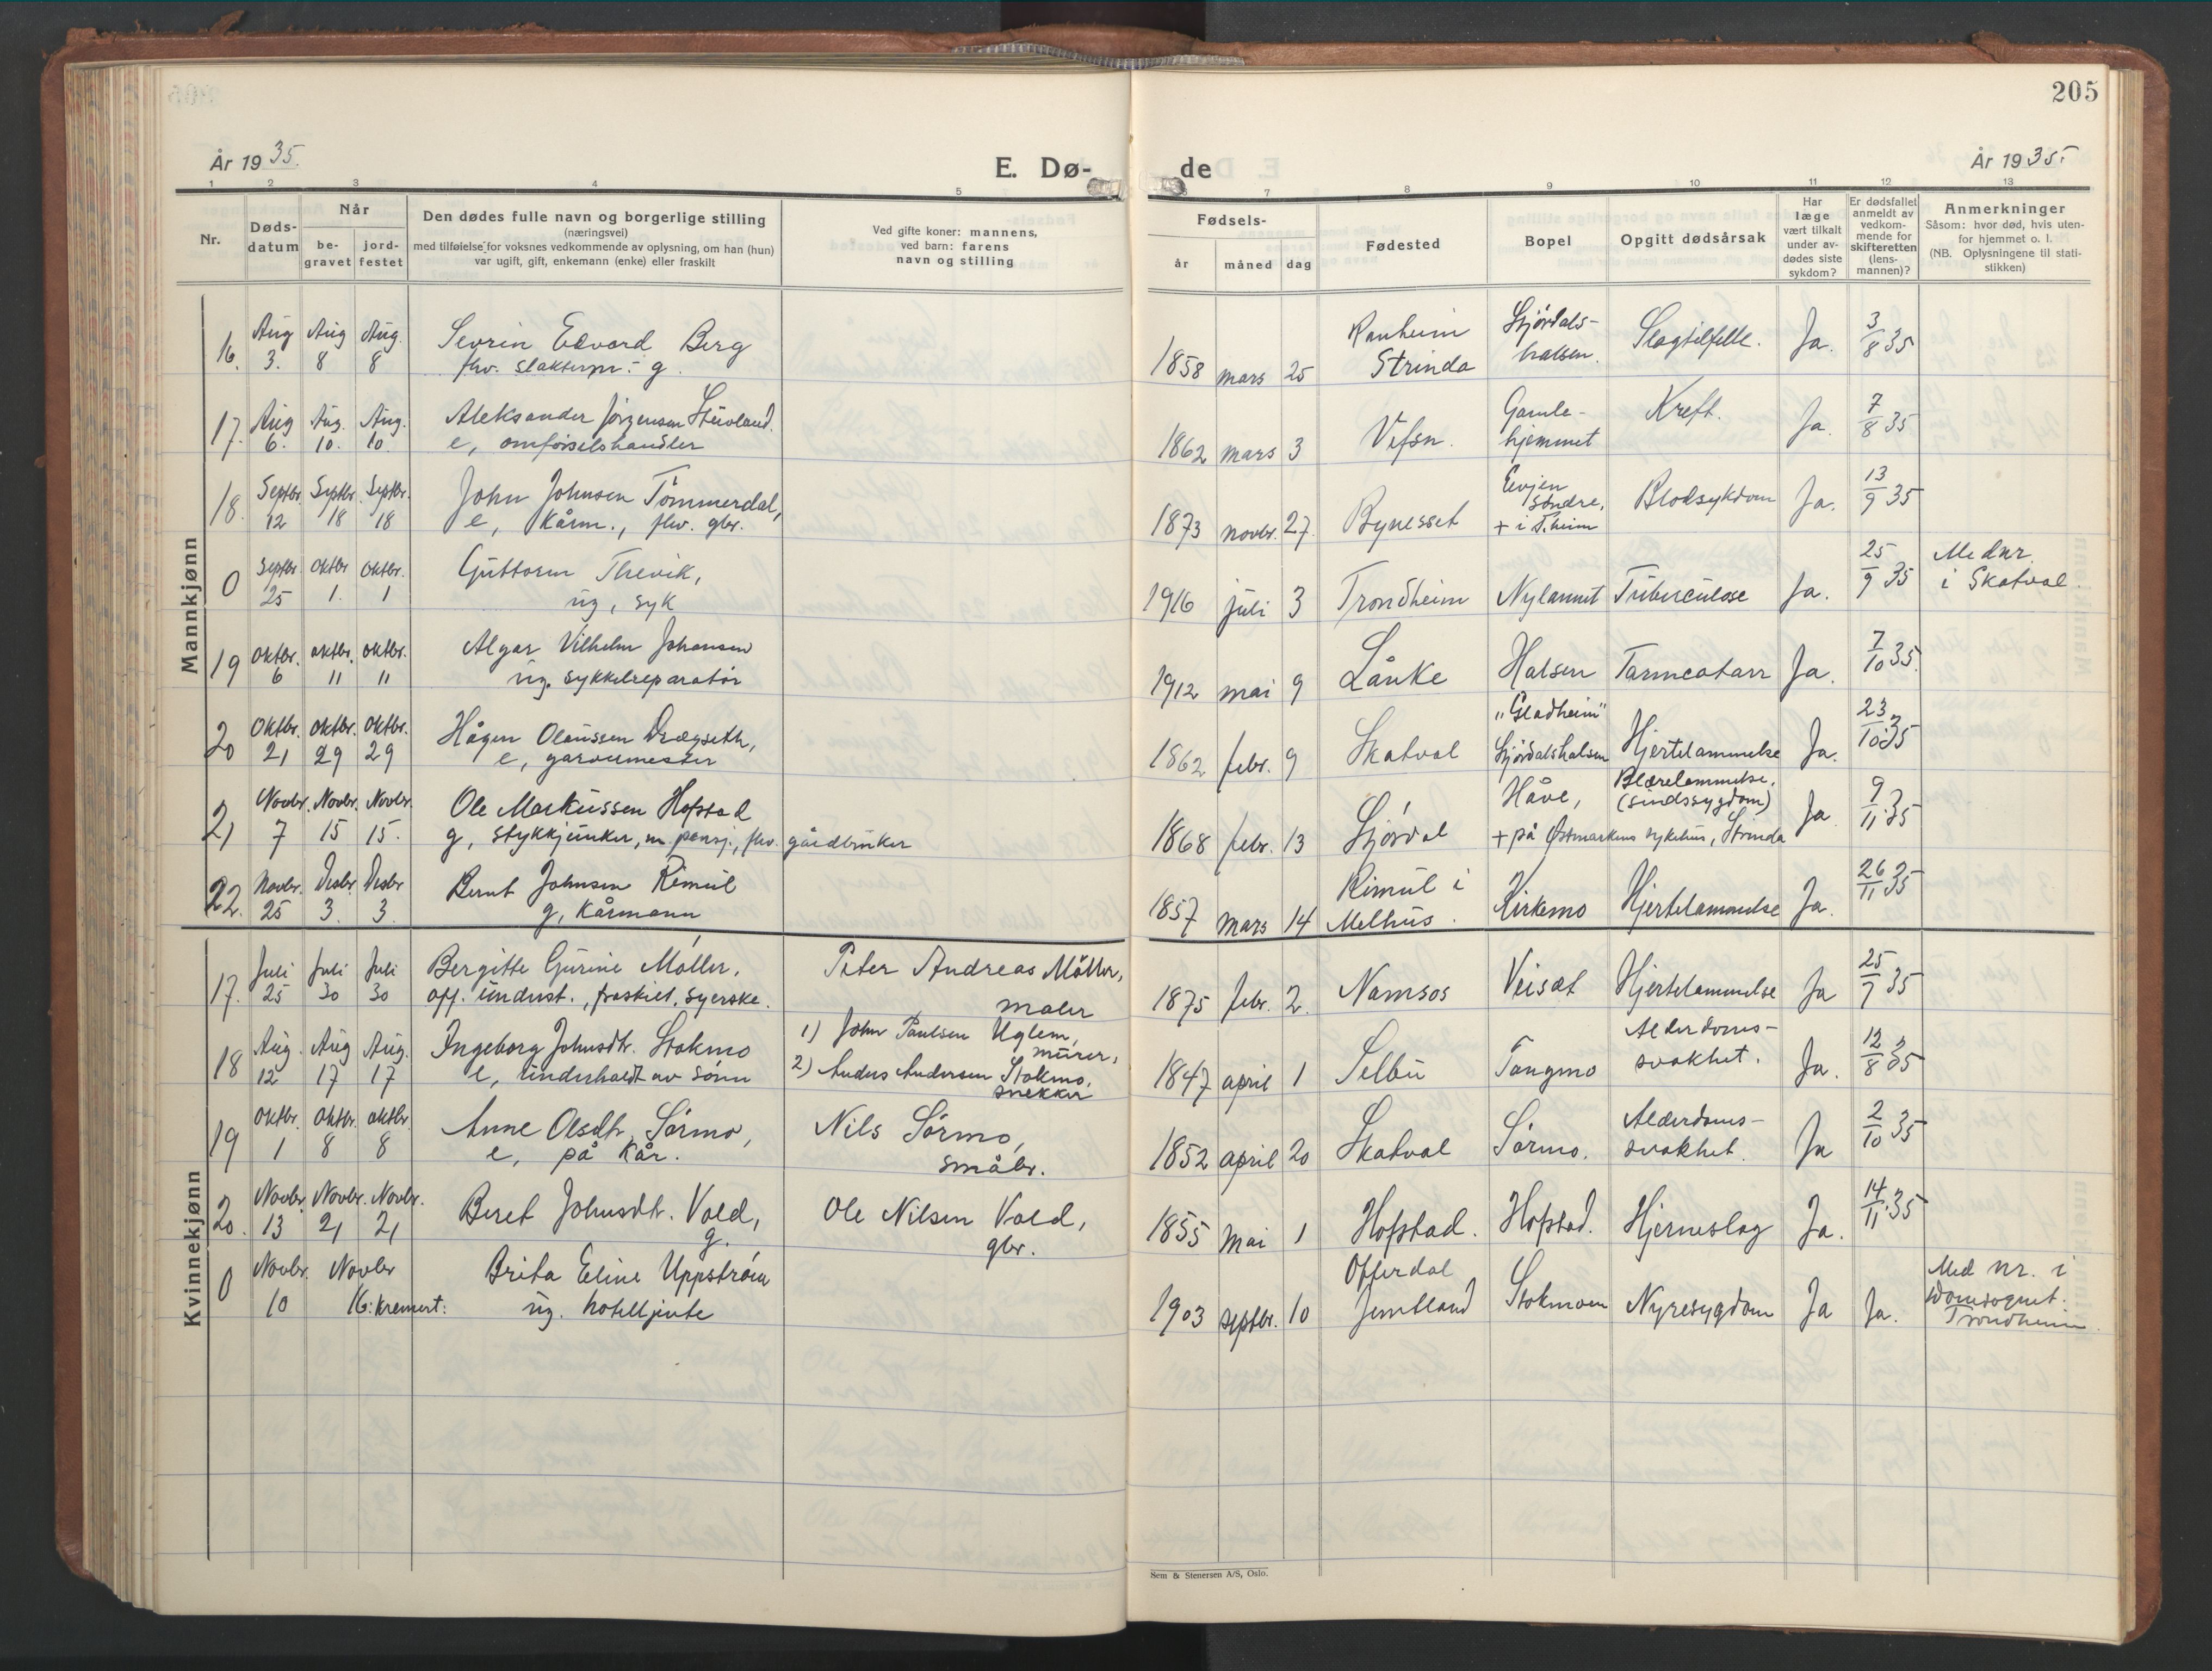 205
År 1935.
E. Dø-
de
År 1935.
1 2 3 4 5 6 7 8 9 10 11 12 13
Nr.
Døds-
datum
Når
be-
gravet
jord-
festet
Den dødes fulle navn og borgerlige stilling
(næringsvei)
med tilføielse for voksnes vedkommende av oplysning, om han (hun)
var ugift, gift, enkemann (enke) eller fraskilt
Ved gifte koner: mannens,
ved barn: farens
navn og stilling
Fødsels-
år måned dag
Fødested
Bopel
Opgitt dødsårsak
Har
læge
vært tilkalt
under av-
dødes siste
sykdom?
Er dødsfallet
anmeldt av
vedkom-
mende for
skifteretten
(lens-
mannen)?
Anmerkninger
Såsom: hvor død, hvis uten-
for hjemmet o. l.
(NB. Oplysningene til stati-
stikken)
Mannkjønn
16. Aug 3. Aug 8 Aug. 8 Sevrin Edvard Berg
fhv. slakterm. - g.
1858 mars 25 Ranheim
Strinda
Stjørdals-
halsen.
Slagtilfelle. Ja. 3/8 35
17. Aug 6. Aug. 10. Aug. 10. Aleksander Jørgensen
e, omførselshandler
1862 mars 3 Vefsn. Gamle-
hjemmet
Kreft. Ja. 7/8 35
18. Septbr. 12 Septbr. 18 Septbr. 18 John Johnsen Tømmerdal,
e, kårm., fhv. gbr.
1873 novbr. 27. Bynesset Evjen
søndre,
+ i T.heim
Blodsykdom Ja. 13/9 35
0 Septbr. 25 Oktbr 1. Oktbr. 1 Guttorm Threvik,
ug, syk
1916 juli 3 Trondheim Nylannet Tuberculose Ja. 25/9 35 Med nr.
i Skatval.
19 Oktbr. 6 Oktbr. 11 Oktbr. 11 Algar Vilhelm Johansen
ug. sykkelreparatør
1912 mai 9 Lånke Halsen Tarmcatarr Ja. 7/10 35.
20 Oktbr. 21 Oktbr. 29 Oktbr. 29 Hågen Olaussen Drægseth,
e, garvermester
1862 febr. 9 Skatval "Gladheim"
Stjørdalshalsen
Hjertelammelse Ja. 23/10 35
21 Novbr. 7 Novbr. 15 Novbr. 15. Ole Markussen Hofstad
g, stykkjunker, m pensj., fhv. gårdbruker
1868 febr. 13 Stjørdal Håve,
+ på Østmarkens sykehus, Strinda
Blærelammelse.
(sindssygdom)
Ja 9/11 35
22. Novbr. 25 Desbr. 3. Desbr 3 Bernt Johnsen Rimul
g, kårmann
1857 mars 14 Rimul i
Melhus.
Kirkemo Hjertelammelse Ja. 26/11 35
Kvinnekjønn
17. Juli 25 Juli 30 Juli 30 Bergitte Gurine Möller,
off. underst., fraskilt, syerske.
Peter Andreas Möller,
maler
1875 febr. 2. Namsos Veisat Hjertelammelse Ja 25/7 35
18 Aug. 12 Aug 17 Aug. 17 Ingeborg Johnsdtr. Stokmo
e, underholdt av sønn
1) John Paulsen Uglem,
murer,
2) Anders Andersen Stokmo,
snekker
1847 april 1 Selbu Tangmo Alderdoms-
svakhet.
Ja. 12/8 35
19 Oktbr. 1 Oktbr. 8 Oktbr. 8 Anne Olsdtr. Sørmo,
e, på kår.
Nils Sørmo,
småbr.
1852 april 20 Skatval Sørmo. Alderdoms-
svakhet.
Ja 2/10 35
20. Novbr. 13 Novbr. 21 Novbr. 21 Beret Johnsdtr. Vold,
g.
Ole Nilsen Vold,
gbr.
1855 Mai 1 Hofstad. Hofstad. Hjerneslag Ja. 14/11 35
0 Novbr. 10 Novbr 16: kremert: Brita Eline Uppström
ug. hotelljente
1903 septbr. 10 Offerdal
Jemtland
Stokmoen Nyresygdom Ja Ja. Med nr. i
Domsognet.
Trondheim.
Sem & Stenersen A/S, Oslo.